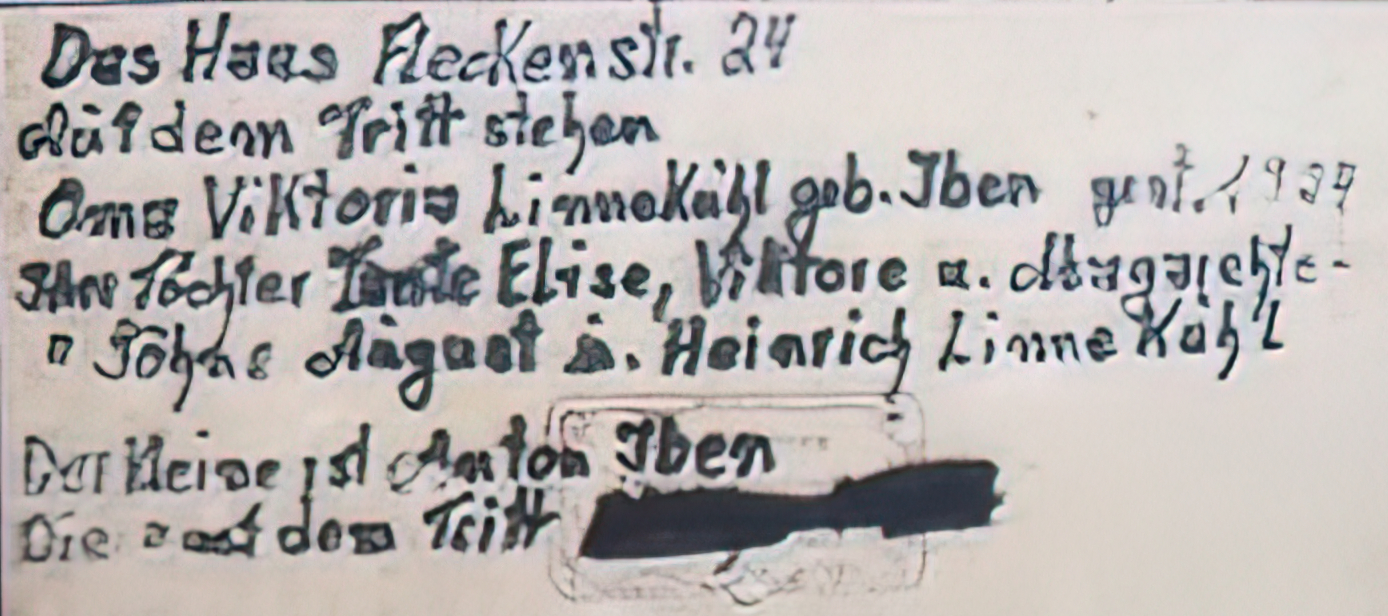 Das Haus Fleckenstr. 24
Auf dem Tritt stehen
Oma Viktoria Linnekuhl geb. Iben gest. 19
Töchter Tante Elise, Viktore u.
" Söhne August u. Heinrich Linnekuhl
Der Kleine ist Anton Iben
Die auf dem Tritt